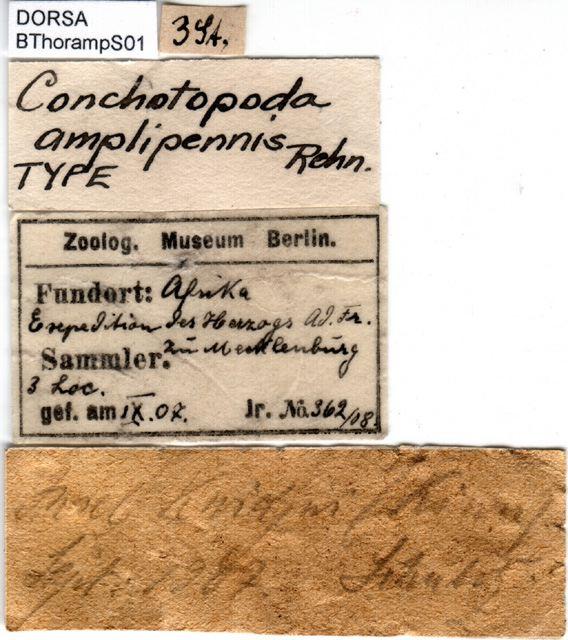 DORSA
BThorampS01
3 St.
Conchotopoda
amplipennis
Rehn.
TYPE
Zoolog. Museum Berlin.
Fundort: Afrika
Exepedition des Herzogs Ad. Fr.
Sammler. zu Mecklenburg
3 Loc.
gef. am IX.07. Jr. No. 362/08.
Insel
Sept. 1907